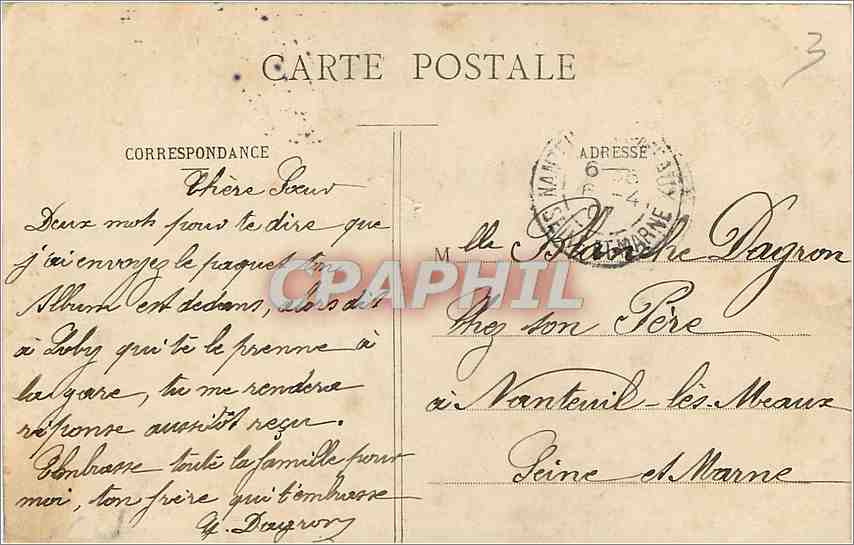 3
CARTE POSTALE
CORRESPONDANCE
Chère Sœur
Deux mots pour te dire que
j'ai envoyez le paquet ton
Album est dedans, alors dit
à qui te le prenne à
la gare, tu me rendera
réponse aussitôt reçu.
Embrasse toute la famille pour
moi, ton frère qui t'embrasse
Dagron
ADRESSE
SEINE-ET-MARNE
Mlle Blanche Dagron
Chez son Père
à Nanteuil-lès-Meaux
Seine et Marne
CPAPHIL